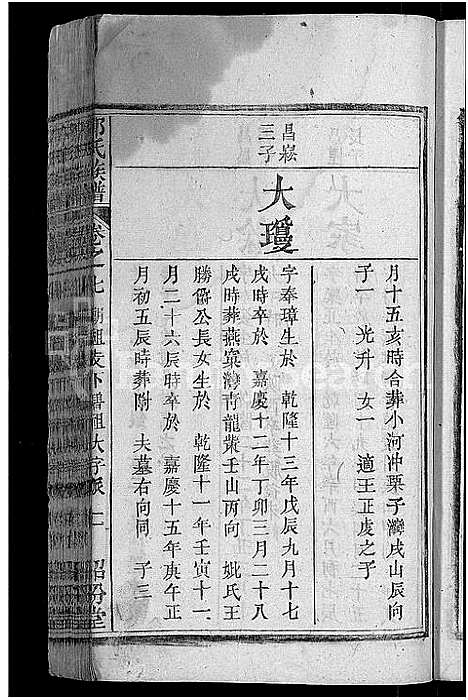 月十五亥時合葬小河冲栗子灣戌山辰向
子一 光升 女一 適王正虔之子
昌崧
三子
大瓊
字奉璋生於 乾隆十三年戊辰九月十七
戌時卒於 嘉慶十二年丁卯三月二十八
戌時葬燕窠灣青龍嘴壬山丙向 妣氏王
勝儕公長女生於 乾隆十一年壬寅十一
月二十六辰時卒於 嘉慶十五年庚午正
月初五辰時葬附 夫墓右向同 子三
氏族譜
卷之七